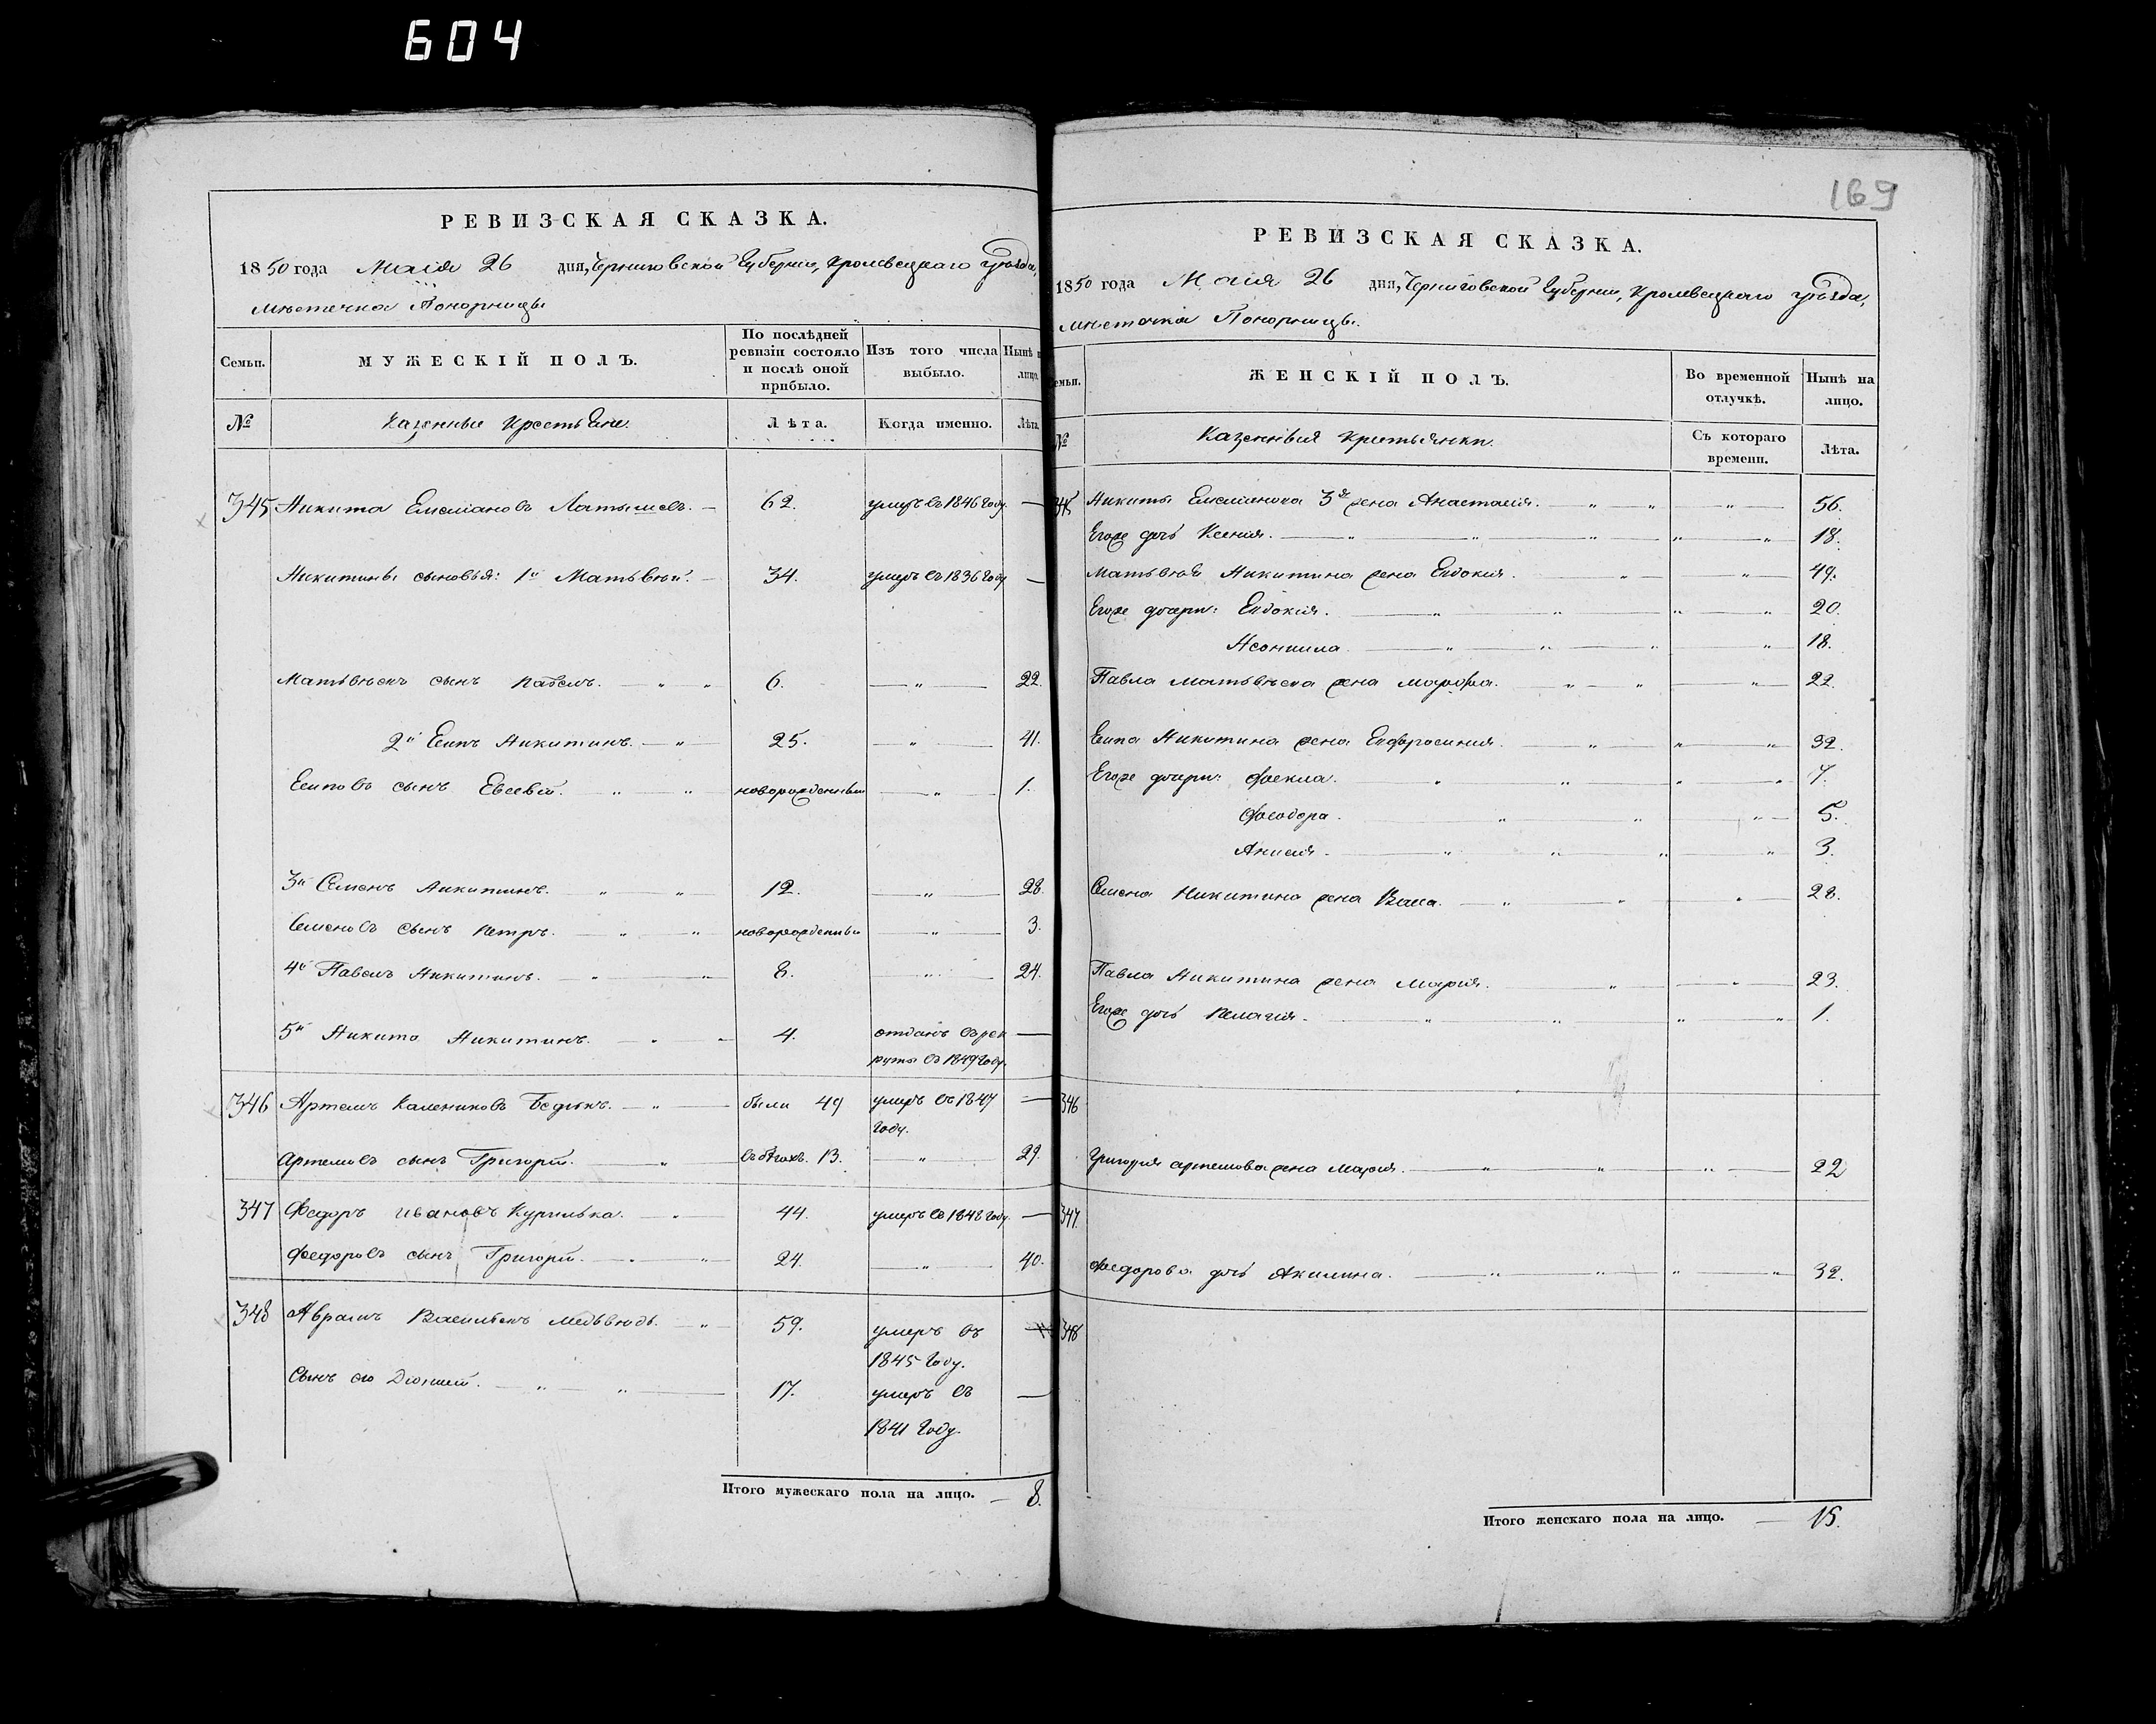 604
РЕВИЗСКАЯ СКАЗКА.
1850 года Маія 26 дня, Черниговской Губерніи, Кролевецкаго уѣзда,
мѣстечка Понорницы
Семьи. МУЖЕСКІЙ ПОЛЪ. По послѣдней ревизіи состояло и послѣ оной прибыло. Изъ того числа выбыло. Нынѣ н лицо.
№ Казенные Крестьяне. Лѣта. Когда именно. Лѣта.
345 Никита Емельановъ Латышевъ. 62. умеръ въ 1846 году. —
Никитины сыновья: 1й Матьвѣй. 34. умеръ въ 1836 году —
Матьвѣевъ сынъ Павелъ. 6. — 22.
2й Есипъ Никитинъ. 25. — 41.
Есиповъ сынъ Евсевій. новорожденный — 1.
3й Семенъ Никитинъ. 12. — 28.
Семеновъ сынъ Петръ. новорожденный — 3.
4й Павелъ Никитинъ. 8. — 24.
5й Никита Никитинъ. 4. отданъ въ рек —
руты въ 1849 году.
346 Артемъ Калениковъ Бедюкъ. были 49 умеръ въ 1847 —
году.
Артемовъ сынъ Григорій. въ бѣгахъ. 13. — 29.
347 Федоръ Ивановъ Курилька. 44. умеръ въ 1848 году. —
Федоровъ сынъ Григорій. 24. — 40.
348 Аврамъ Васильевъ Медьвѣдь. 59. умеръ въ
1845 году.
Сынъ его Діонисій. 17. умеръ въ —
1841 году.
Итого мужескаго пола на лицо. — 8.
169
РЕВИЗСКАЯ СКАЗКА.
1850 года Маія 26 дня, Черниговской Губерніи, Кролевецкаго уѣзда,
мѣстечка Понорницы.
емьи. ЖЕНСКІЙ ПОЛЪ. Во временной отлучкѣ. Нынѣ на лицо.
№ Казенныя крестьянки. Съ котораго времени. Лѣта.
345 Никиты Емельянова 3я жена Анастасія. 56.
Егоже дочь Ксенія. 18.
Матьвѣя Никитина жена Евдокія. 49.
Егоже дочери: Евдокія. 20.
18.
Павла Матьвѣева жена Марфа. 22.
Есипа Никитина жена Евфросинія. 32.
Егоже дочери: Фекла. 7.
Феодора. 5.
Анисія. 3.
Семена Никитина жена Васа. 28.
Павла Никитина жена Марія. 23.
Егоже дочь Пелагія. 1.
346
Григорія Артемова жена Марія. 22
347
Федорова дочь Акилина. 32.
348
Итого женскаго пола на лицо. — 15.